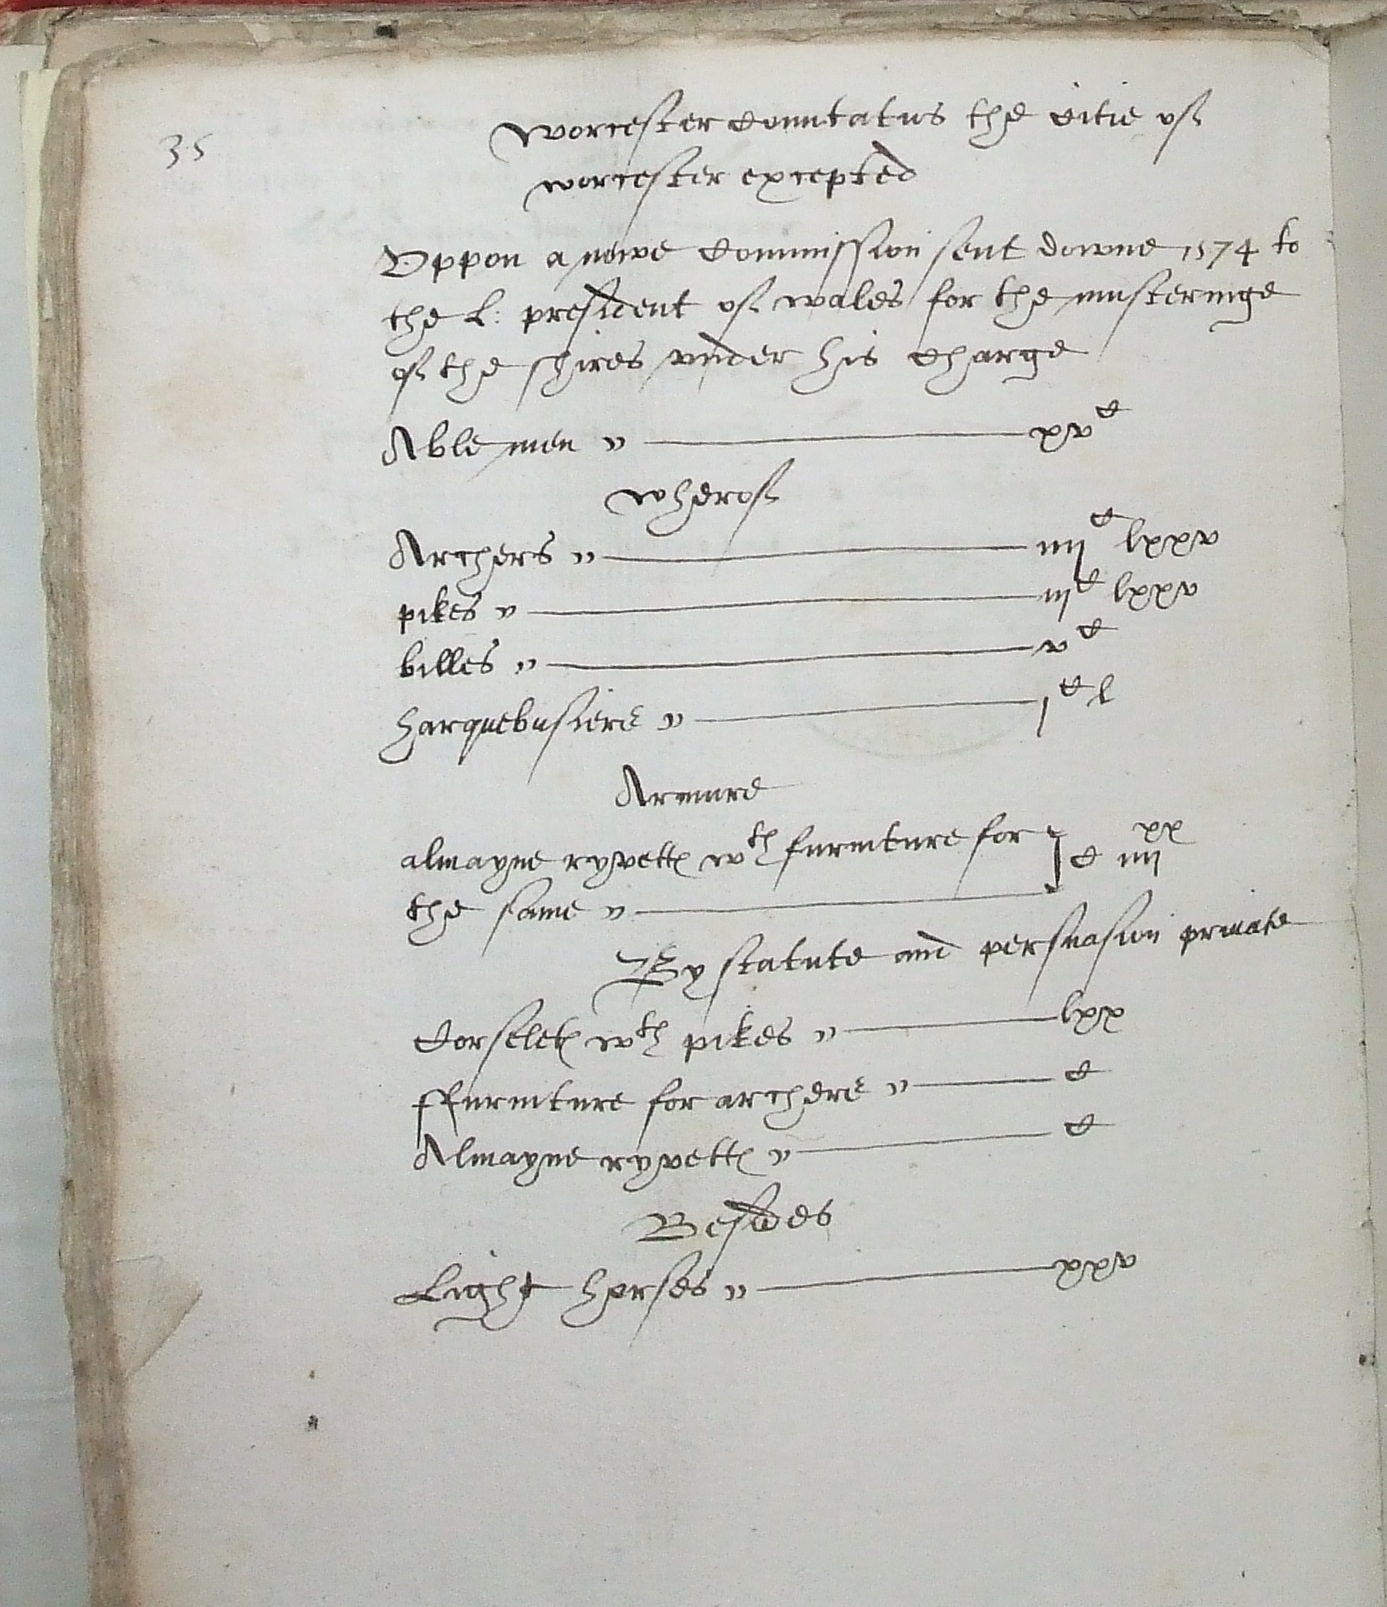 35
Worcester Comitatus the Citie of
worcester excepted
Vppon a newe Commission sent downe 1574 to
the L: president of wales for the musteringe
of the shires vnder his Charge
Able men " xv C
wherof
Archers " iiij C lxxv
pikes " iij C lxxv
billes " v C
harquebusiers " j C l
Armure
almayne ryvettes wth furniture for
the same " C iiij xx
By statute and perswasion private
Corselets wth pikes " lxx
ffurniture for archers " C
Almayne ryvettes " C
Besides
Light horses " xxv